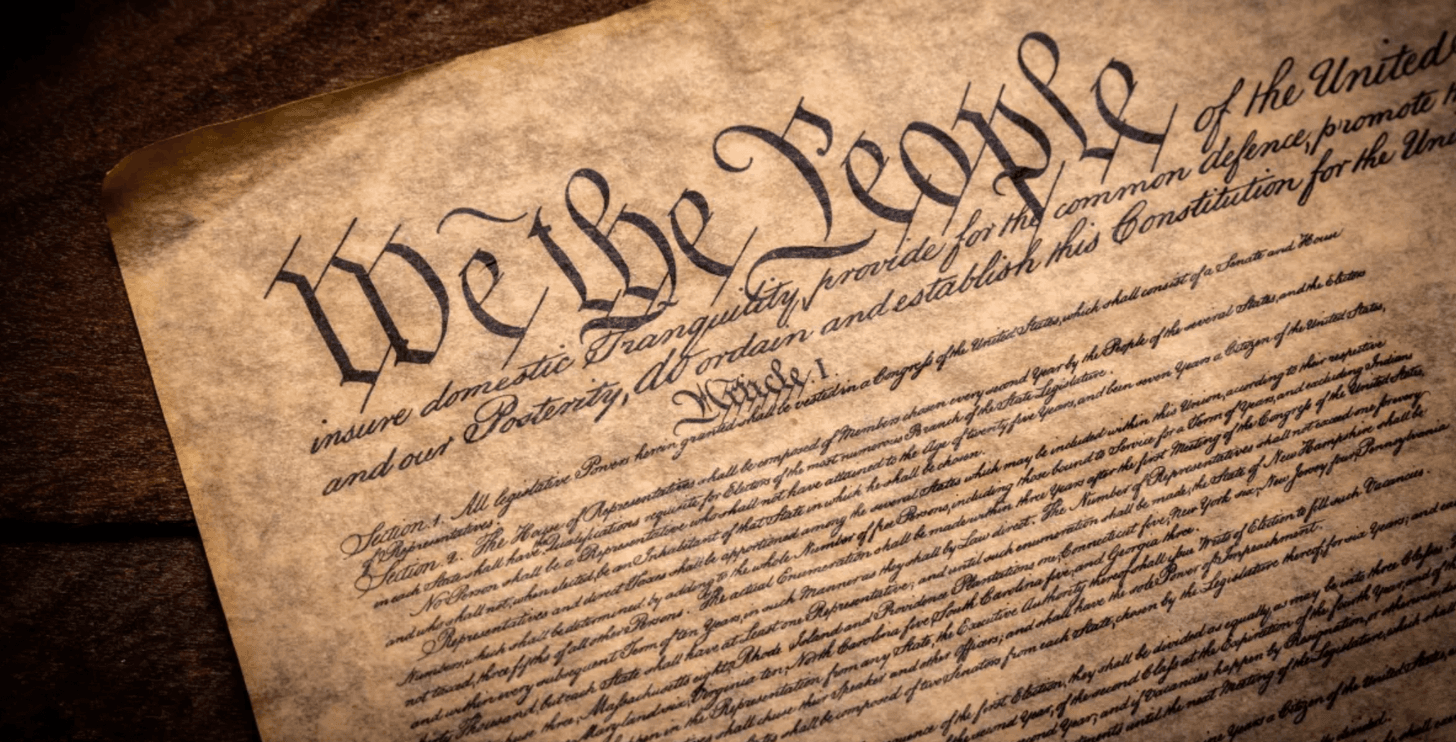 We the People of the United
insure domestic Tranquility, provide for the common defence, promote
and our Posterity, do ordain and establish this Constitution for the Uni
Article. I.
Section. 1. All legislative Powers herein granted shall be vested in a Congress of the United States, which shall consist of a Senate and House
of Representatives.
Section. 2. The House of Representatives shall be composed of Members chosen every second Year by the People of the several States, and the Electors
in each State shall have Qualifications requisite for Electors of the most numerous Branch of the State Legislature.
No Person shall be a Representative who shall not have attained to the Age of twenty five Years, and been seven Years a Citizen of the United States,
and who shall not, when elected, be an Inhabitant of that State in which he shall be chosen.
Representatives and direct Taxes shall be apportioned among the several States which may be included within this Union, according to their respective
Numbers, which shall be determined by adding to the whole Number of free Persons, including those bound to Service for a Term of Years, and excluding Indians
not taxed, three fifths of all other Persons. The actual Enumeration shall be made within three Years after the first Meeting of the Congress of the United States,
and within every subsequent Term of ten Years, in such Manner as they shall by Law direct. The Number of Representatives shall not exceed one for every
thirty Thousand, but each State shall have at Least one Representative; and until such enumeration shall be made, the State of New Hampshire shall be
three, Massachusetts eight, Rhode Island and Providence Plantations one, Connecticut five, New York six, New Jersey four, Pennsylvania
Maryland six, Virginia ten, North Carolina five, South Carolina five, and Georgia three.
happen in the Representation from any State, the Executive Authority thereof shall issue Writs of Election to fill such Vacancies.
shall chuse their Speaker and other Officers; and shall have the sole Power of Impeachment.
shall be composed of two Senators from each State, chosen by the Legislature thereof, for six Years; and
of the first Election, they shall be divided as equally as may be into three Classes
the second Year, of the second Class at the Expiration of the fourth Year, and of
second Year; and if Vacancies happen by Resignation, or otherwise
until the next Meeting of the Legislature, which
Years a Citizen of the United States,
divided.